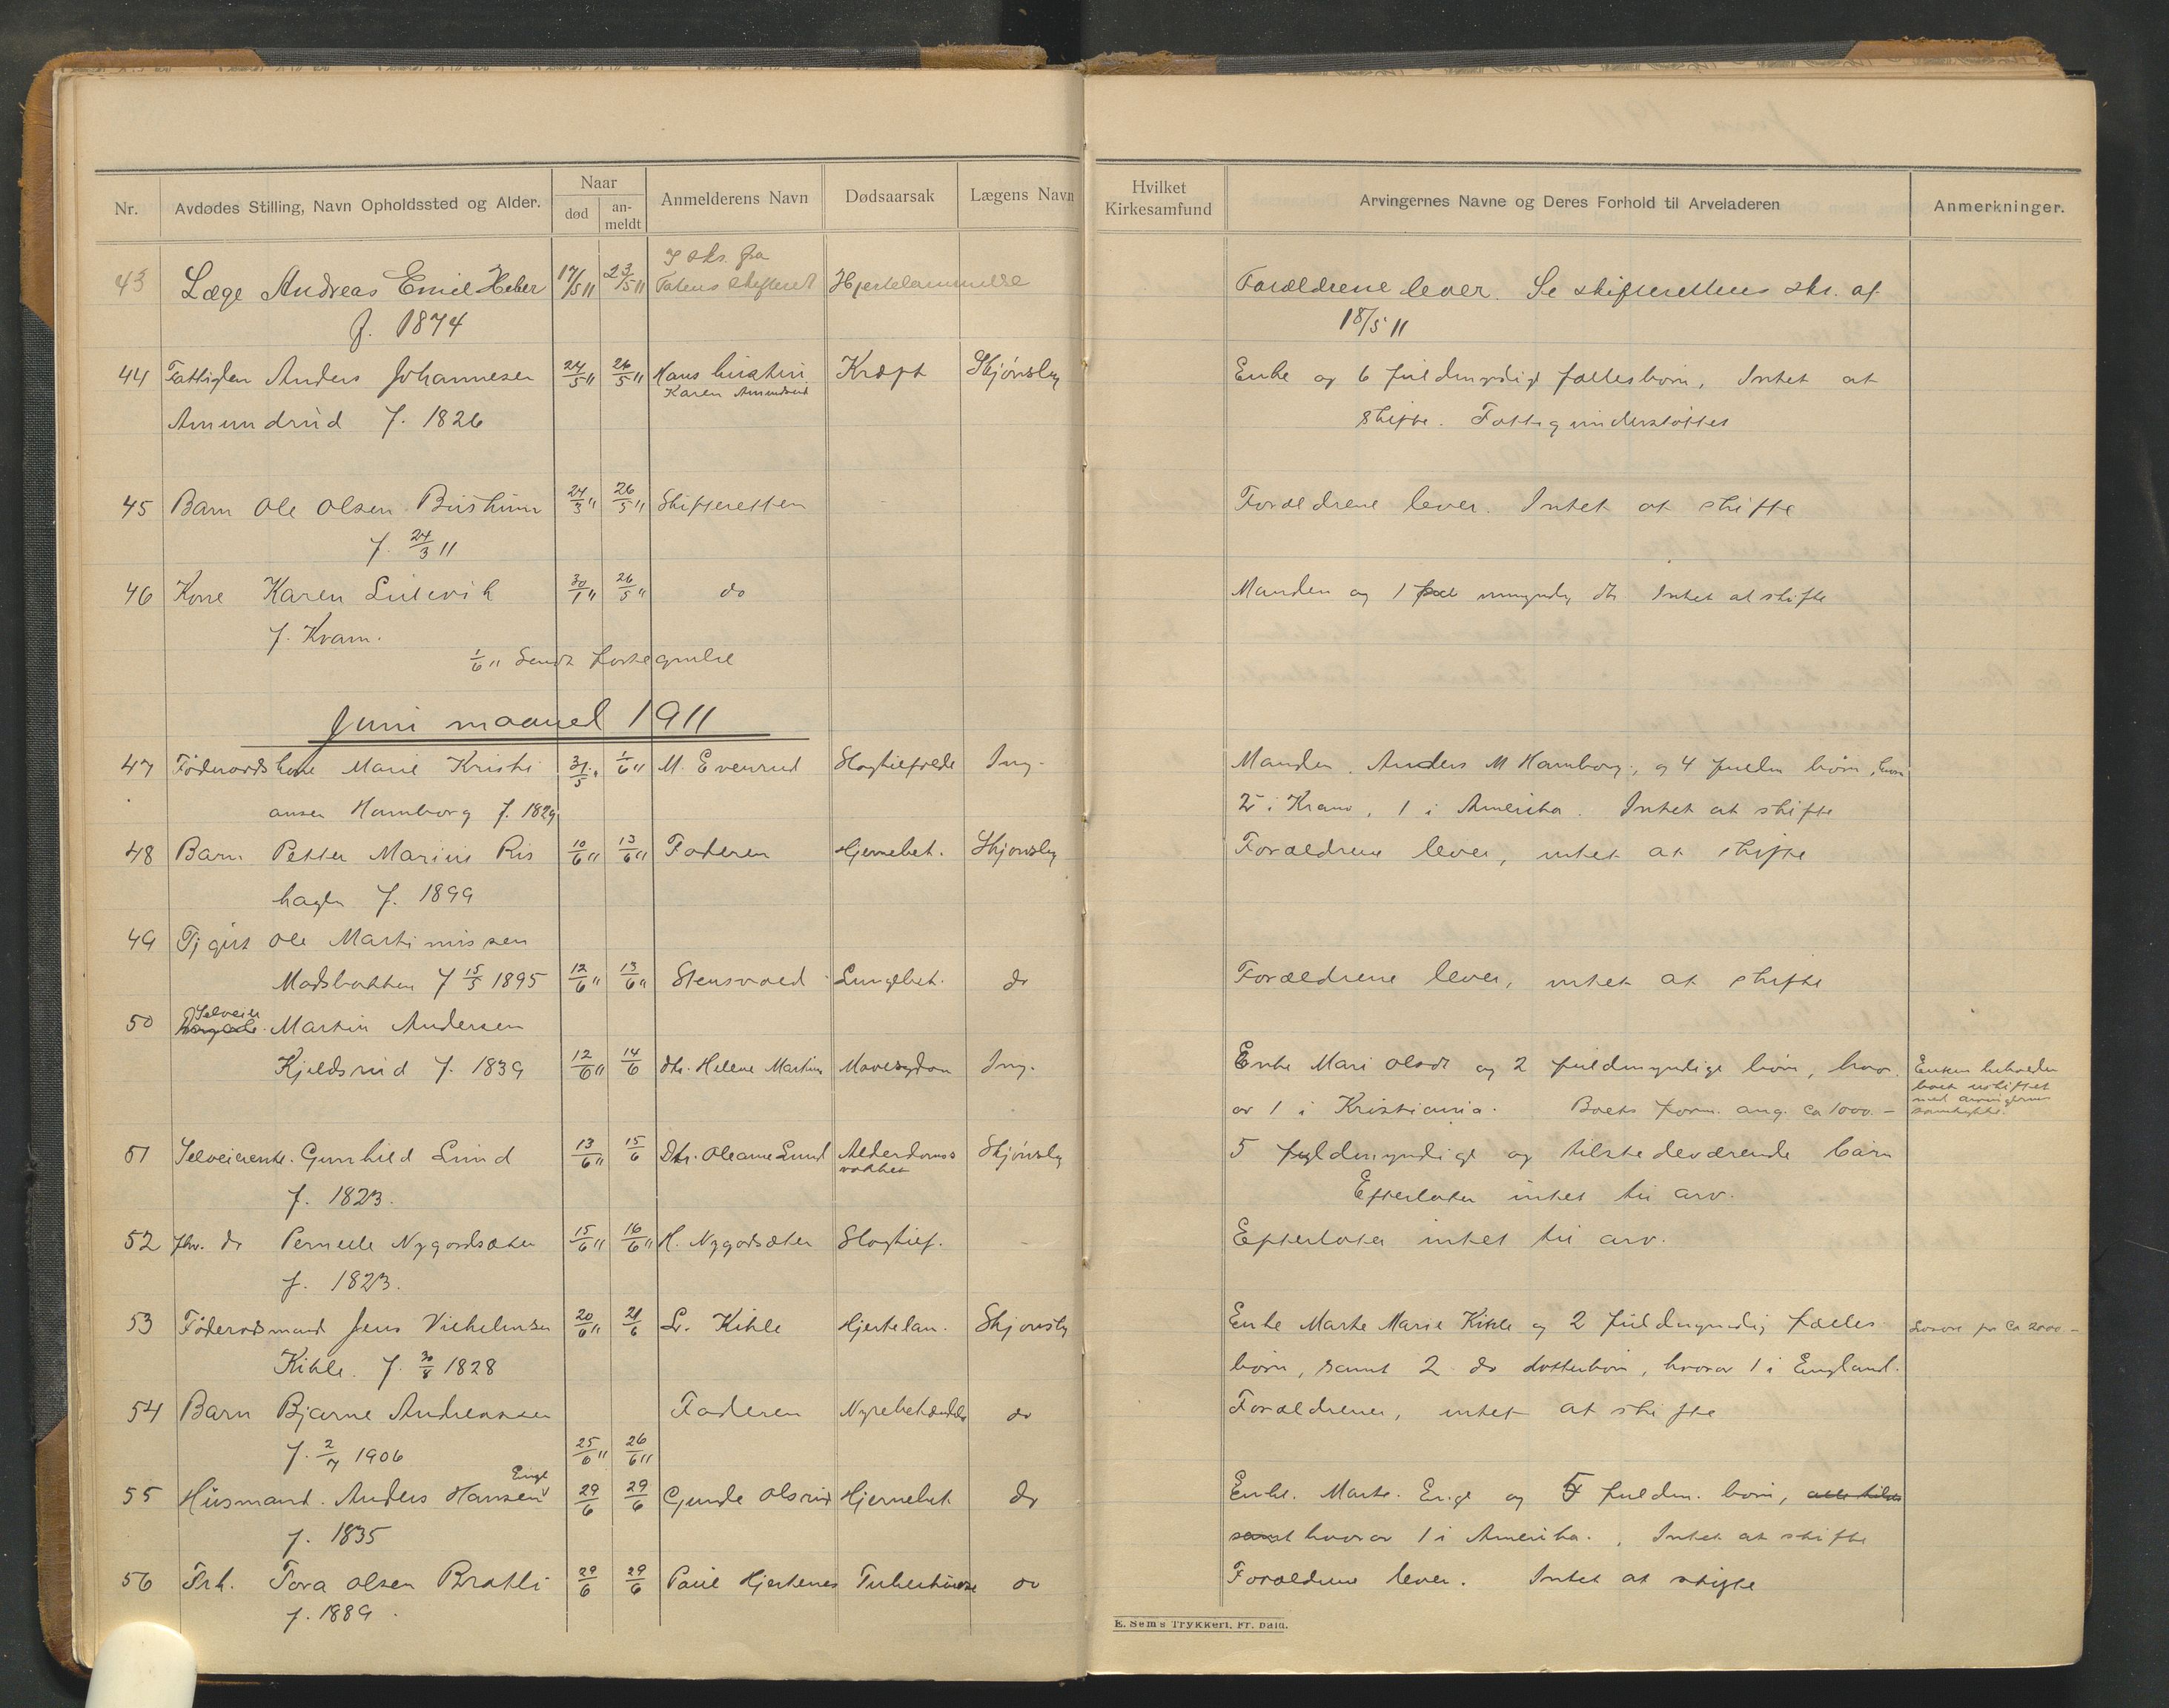 Nr.
Avdødes Stilling, Navn Opholdssted og Alder.
Naar
død
an-
meldt
Anmelderens Navn
Dødsaarsak
Lægens Navn
Hvilket
Kirkesamfund
Arvingernes Navne og Deres Forhold til Arveladeren
Anmerkninger.
43 Læge Andreas Emil Heber 17/5 11 23/5 11 Hjertelammelse Forældrene lever. Se skifterettens skr. af
f. 1874 18/5 11
44 Fattiglem Anders Johannesen 24/5 " 26/5 " Hans Kristin Kræft Skjønsby Enke og 6 fuldmyndige fællesbørn, Intet at
Karen Amundrud
Amundrud f. 1826 skifte. Fattigunderstøttet
45 Barn Ole Olsen 24/3 " 26/5 " Skifteretten Forældrene lever. Intet at skifte
f. 24/3 11
46 Kone Karen Lillevik 30/1 " 26/5 " do Manden og 1 umyndig dtr Intet at skifte
f. Kvam.
1/6 " Sendt fortegnelse
Juni maaned 1911
47 Føderaadskone Marie Kristi 31/5 " 1/6 " M. Evenrud Slagtilfælde Ing. Manden Anders M Hamborg, og 4 fuldm børn, hvoraf
ansen Hamborg f. 1829 2 i Kram, 1 i Amerika. Intet at skifte
48 Barn Petter Marius Ris 10/6 " 13/6 " Faderen Hjernebet. Skjønsby Forældrene lever, intet at skifte
hagen f. 1899
49 Tjgut Ole Martinussen
Madsbakken f 15/5 1895 12/6 " 13/6 " Stensvold Lungebet. do Forældrene lever, intet at skifte
Selveier
50 Martin Andersen
Kjeldsrud f. 1839 12/6 " 14/6 dtr. Helene Martins Mavesygdom Ing. Enke Mari Olsdt og 2 fuldmyndige børn, hvor Enken beholder
av 1 i Kristiania. Boets form. ang. ca 1000.- boet uskiftet
med arvingernes
samtykke.
51 Selveierenke. Gunhild Lund 13/6 " 15/6 Dtr. Oleane Lund Alderdoms Skjønsby 5 fyldmyndige og tilstedeværende børn
svakhet
f. 1823. Efterlater intet til arv.
52 fhv. do Pernille Nygordsæter 15/6 " 16/6 " H. Nygordsæter Slagtilf. - Efterlater intet til arv.
f. 1823.
53 Føderadsmand Jens Vilhelmsen 20/6 " 21/6 L. Kihle Hjertelam. Skjønsby Enke Marte Marie Kihle og 2 fuldmyndig fælles
Kihle. f. 30/8 1828 børn, samt 2 do datterbørn, hvorav 1 i England.
54 Barn Bjarne Andreassen Faderen do Forældrene, intet at skifte
f. 2/7 1906 25/6 " 26/6 "
Enge
55 Husmand. Anders Hansen 29/6 29/6 Gunda Olsrud Hjernebet do Enke. Marte. Enge og 5 fuldm. børn, alle tilst
f. 1835 samt hvorav 1 i Amerika. Intet at skifte
56 Frk. Tora Olsen Bratli 29/6 29/6 Paul Hjertenes Tuberkulose do Forældrene lever. Intet at skifte
f. 1889.
E. Sem's Trykkeri, Fr. hald.